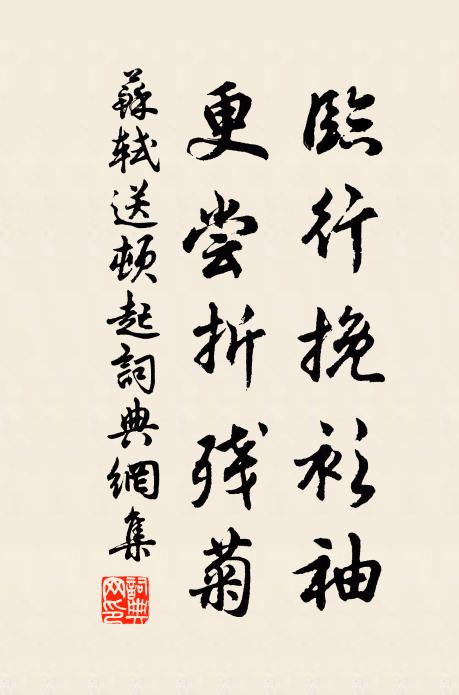 臨行挽衫袖
更尝折残菊
蘇軾送頓起詞典網集
詞典网印